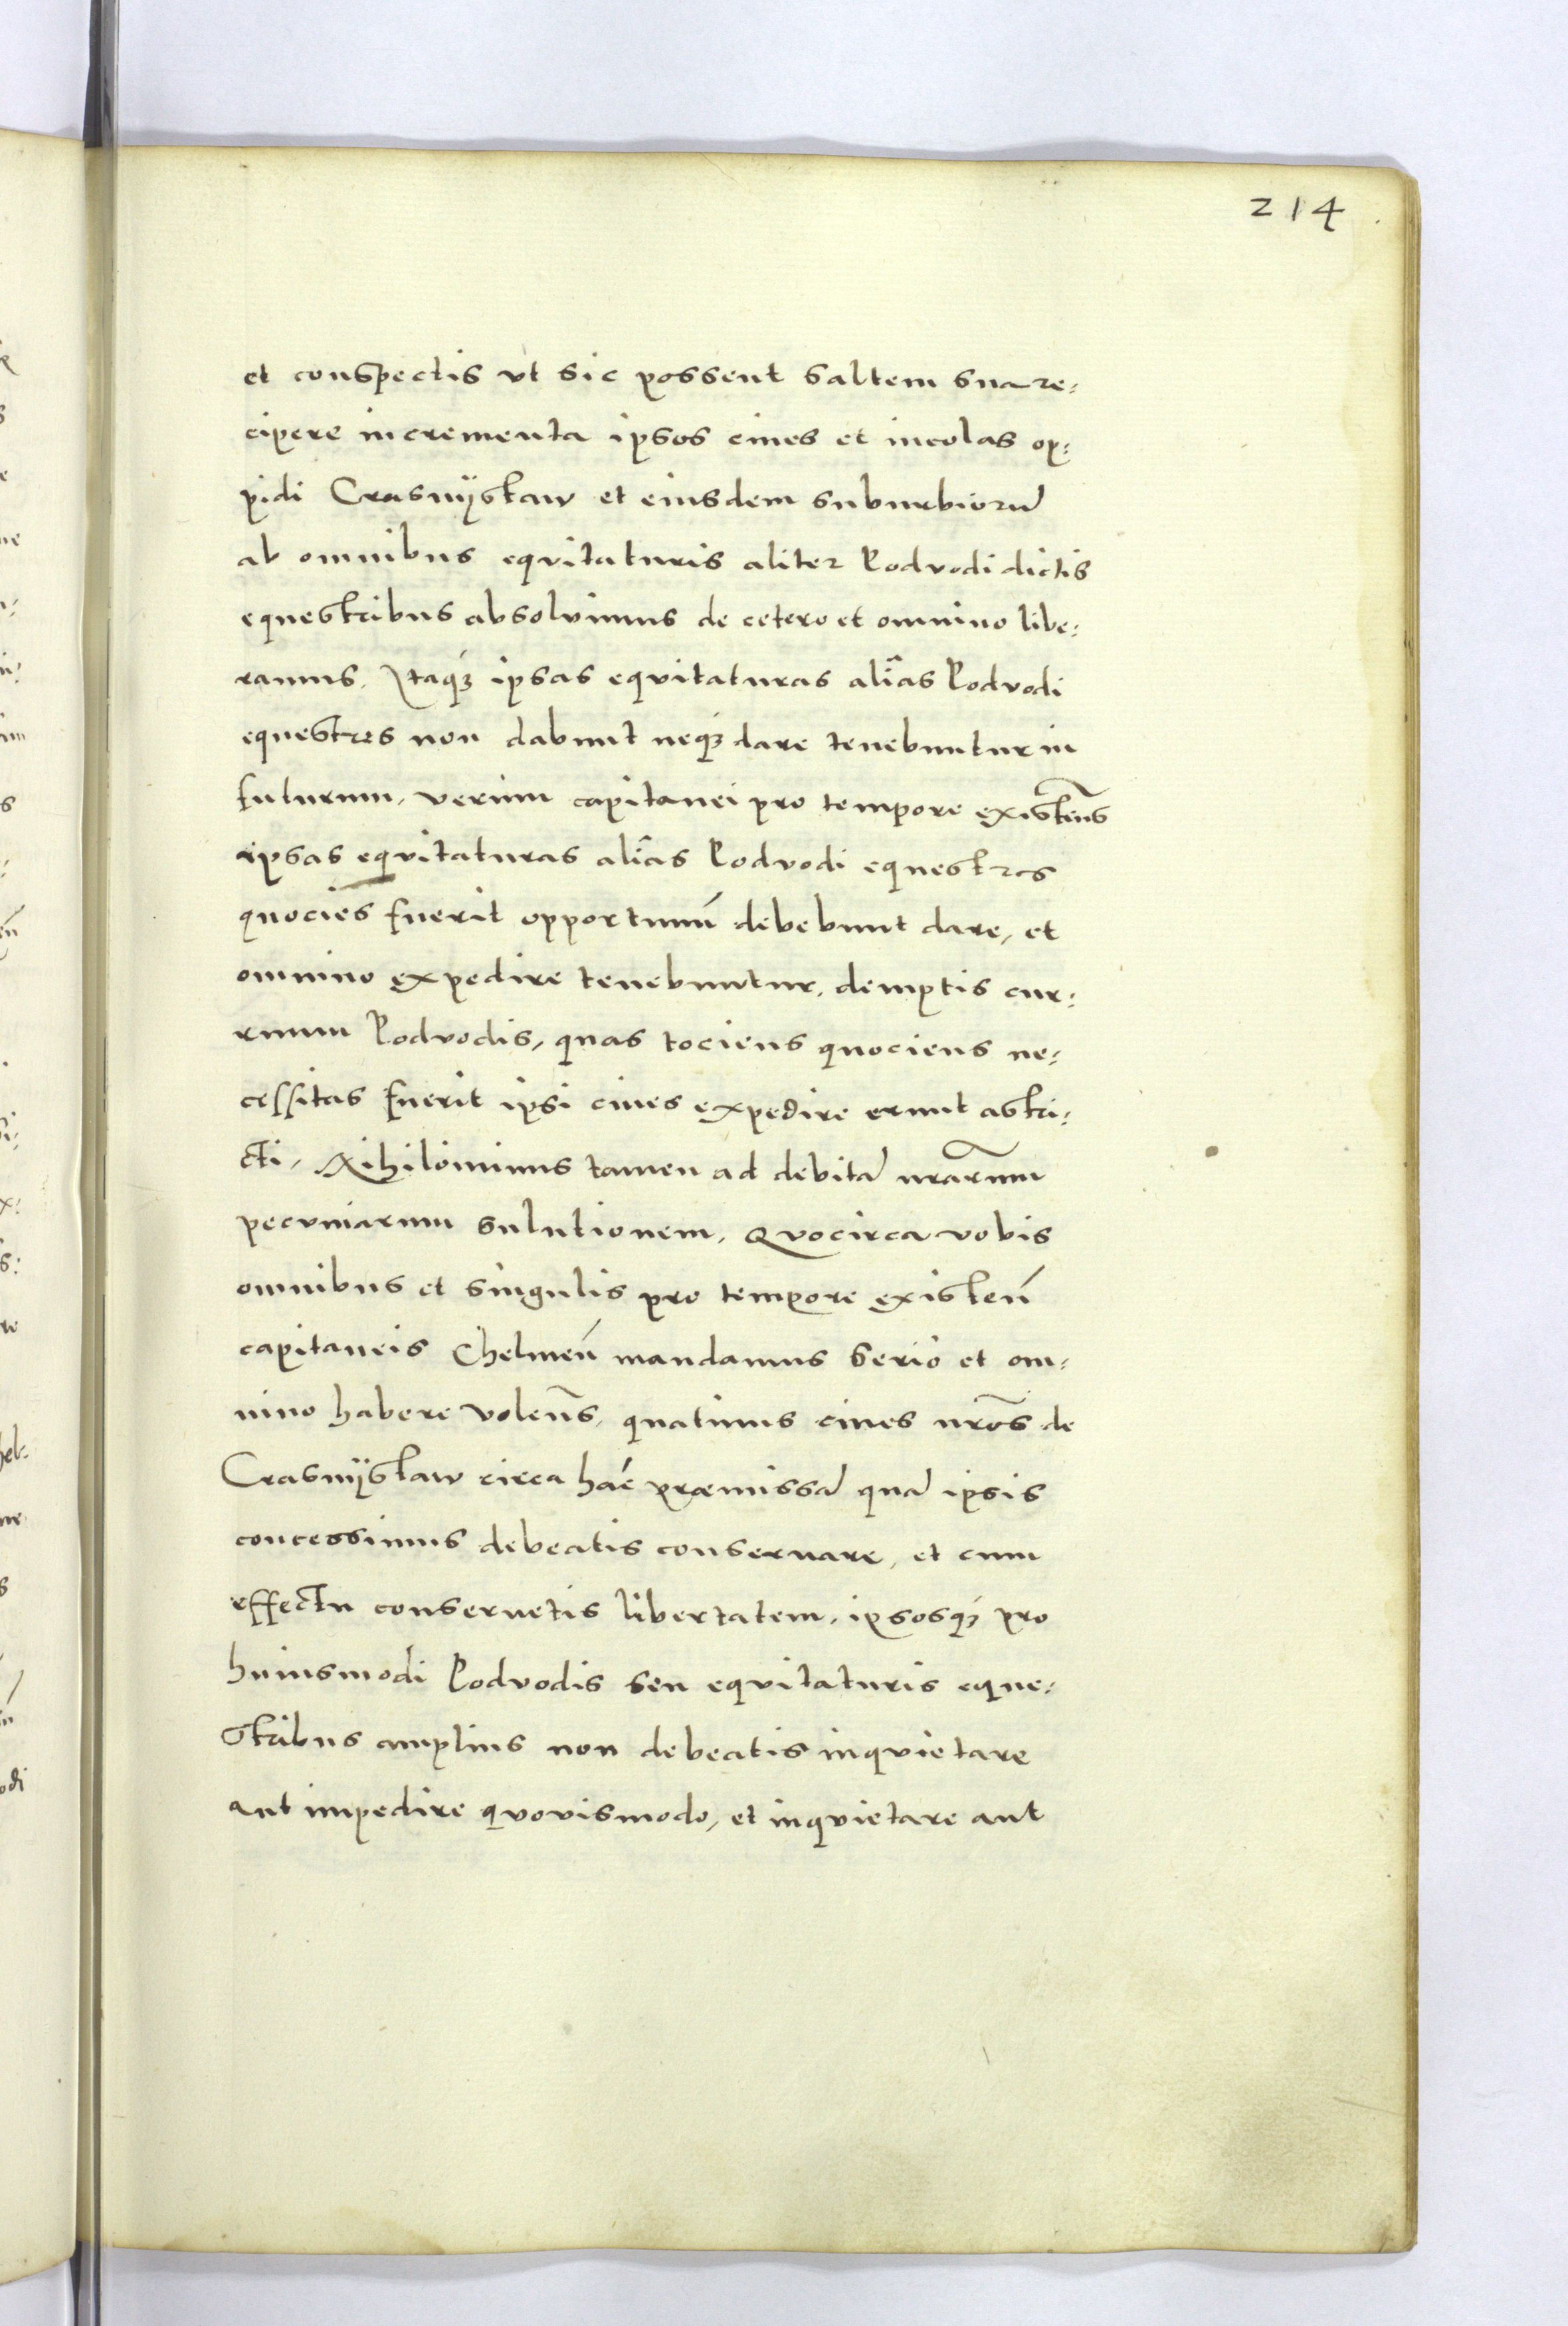 214
et conspectis vt sic possent saltem sua re:
cipere incrementa ipsos ciues et incolas op:
pidi Crasnijstaw et eiusdem suburbiorũ
ab omnibus eqvitaturis aliter Podvodi dictis
equestribus absoluimus de cetero et omnino libe:
ramus. Itaqꝫ ipsas eqvitaturas alĩas Podvodi
equestres non dabunt neqꝫ dare tenebuntur in
futurum, verum capitanei pro tempore existẽns
ipsas eqvitaturas alĩas Podvodi equestres
quocies fuerit opportunũ debebunt dare, et
omnino expedire tenebuntur, demptis cur:
ruum Podvodis, quas tociens quociens ne:
cessitas fuerit ipsi ciues expedire erunt astri:
cti, Nihilominus tamen ad debitã nr̃arum
pecuniarum sulutionem, Qvocirca vobis
omnibus et singulis pro tempore existeñ
capitaneis Chelmeñ mandamus serio et om:
nino habere voleñs, quatinus ciues nr̃os de
Crasnijstaw circa hãc præmissã quã ipsis
concessimus debeatis conseruare, et cum
effectu conseruetis libertatem, ipsosqꝫ pro
huiusmodi Podvodis seu eqvitaturis eque:
stribus amplius non debeatis inqvietare
aut impedire qvovismodo, et inqvietare aut